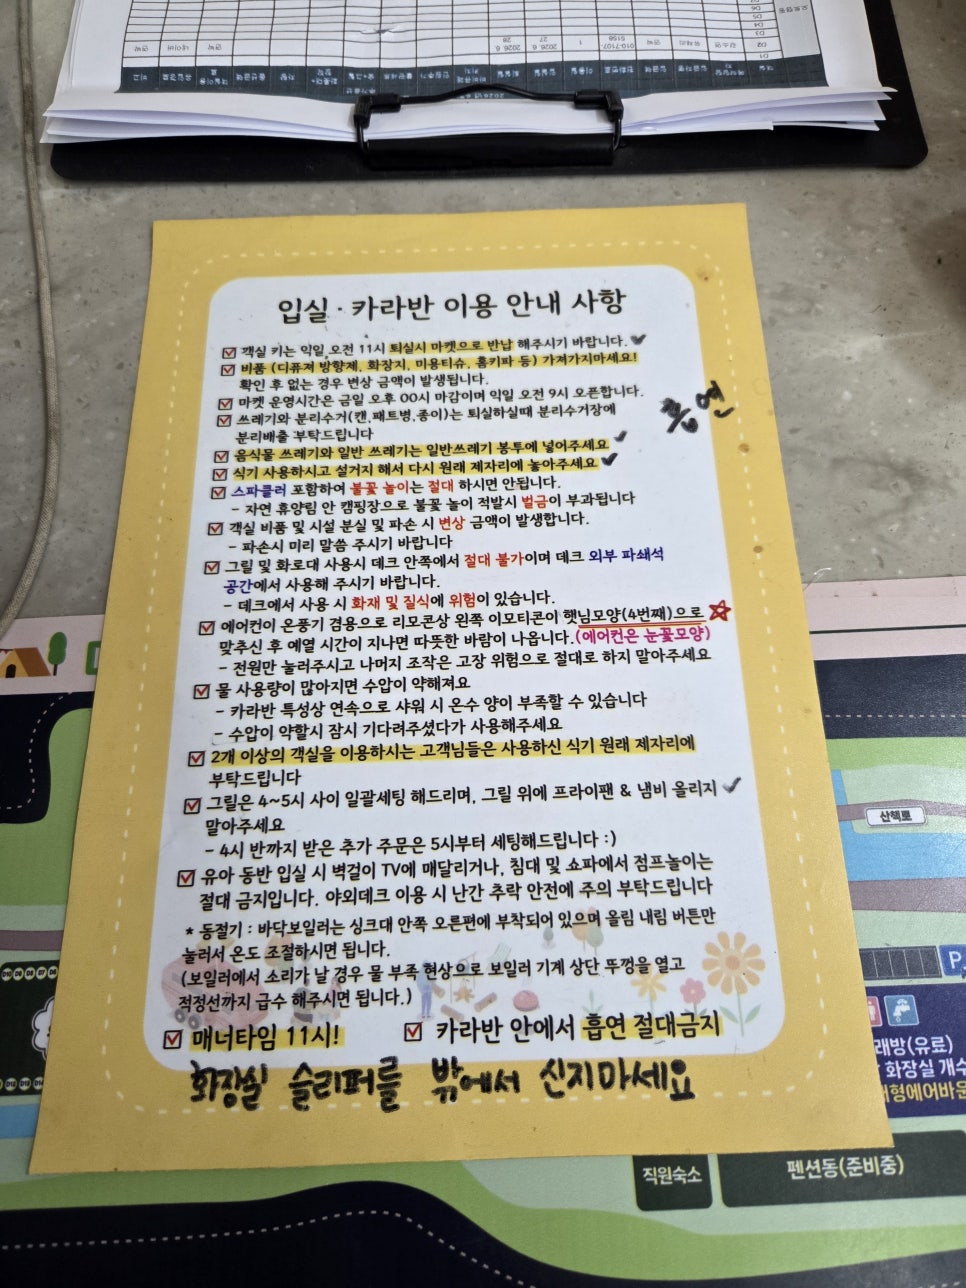 입실 · 카라반 이용 안내 사항
객실 키는 익일 오전 11시 퇴실시 마켓으로 반납 해주시기 바랍니다.
비품 (디퓨져 방향제, 화장지, 미용티슈, 홈키파 등) 가져가지마세요!
확인 후 없는 경우 변상 금액이 발생됩니다.
마켓 운영시간은 금일 오후 00시 마감이며 익일 오전 9시 오픈합니다.
쓰레기와 분리수거(캔,패트병,종이)는 퇴실하실때 분리수거장에
분리배출 부탁드립니다
흡연
음식물 쓰레기와 일반 쓰레기는 일반쓰레기 봉투에 넣어주세요
식기 사용하시고 설거지 해서 다시 원래 제자리에 놓아주세요
스파클러 포함하여 불꽃 놀이는 절대 하시면 안됩니다.
- 자연 휴양림 안 캠핑장으로 불꽃 놀이 적발시 벌금이 부과됩니다
객실 비품 및 시설 분실 및 파손 시 변상 금액이 발생합니다.
- 파손시 미리 말씀 주시기 바랍니다
그릴 및 화로대 사용시 데크 안쪽에서 절대 불가이며 데크 외부 파쇄석
공간에서 사용해 주시기 바랍니다.
- 데크에서 사용 시 화재 및 질식에 위험이 있습니다.
에어컨이 온풍기 겸용으로 리모콘상 왼쪽 이모티콘이 햇님모양(4번째)으로
맞추신 후 예열 시간이 지나면 따뜻한 바람이 나옵니다.(에어컨은 눈꽃모양)
- 전원만 눌러주시고 나머지 조작은 고장 위험으로 절대로 하지 말아주세요
물 사용량이 많아지면 수압이 약해져요
- 카라반 특성상 연속으로 샤워 시 온수 양이 부족할 수 있습니다
- 수압이 약할시 잠시 기다려주셨다가 사용해주세요
2개 이상의 객실을 이용하시는 고객님들은 사용하신 식기 원래 제자리에
부탁드립니다
그릴은 4~5시 사이 일괄세팅 해드리며, 그릴 위에 프라이팬 & 냄비 올리지
말아주세요
- 4시 반까지 받은 추가 주문은 5시부터 세팅해드립니다 :)
유아 동반 입실 시 벽걸이 TV에 매달리거나, 침대 및 쇼파에서 점프놀이는
절대 금지입니다. 야외데크 이용 시 난간 추락 안전에 주의 부탁드립니다
* 동절기 : 바닥보일러는 싱크대 안쪽 오른편에 부착되어 있으며 올림 내림 버튼만
눌러서 온도 조절하시면 됩니다.
(보일러에서 소리가 날 경우 물 부족 현상으로 보일러 기계 상단 뚜껑을 열고
적정선까지 급수 해주시면 됩니다.)
매너타임 11시!
카라반 안에서 흡연 절대금지
화장실 슬리퍼를 밖에서 신지마세요
산책로
P
래방(유료)
화장실 개수
형에어바운
직원숙소
펜션동(준비중)